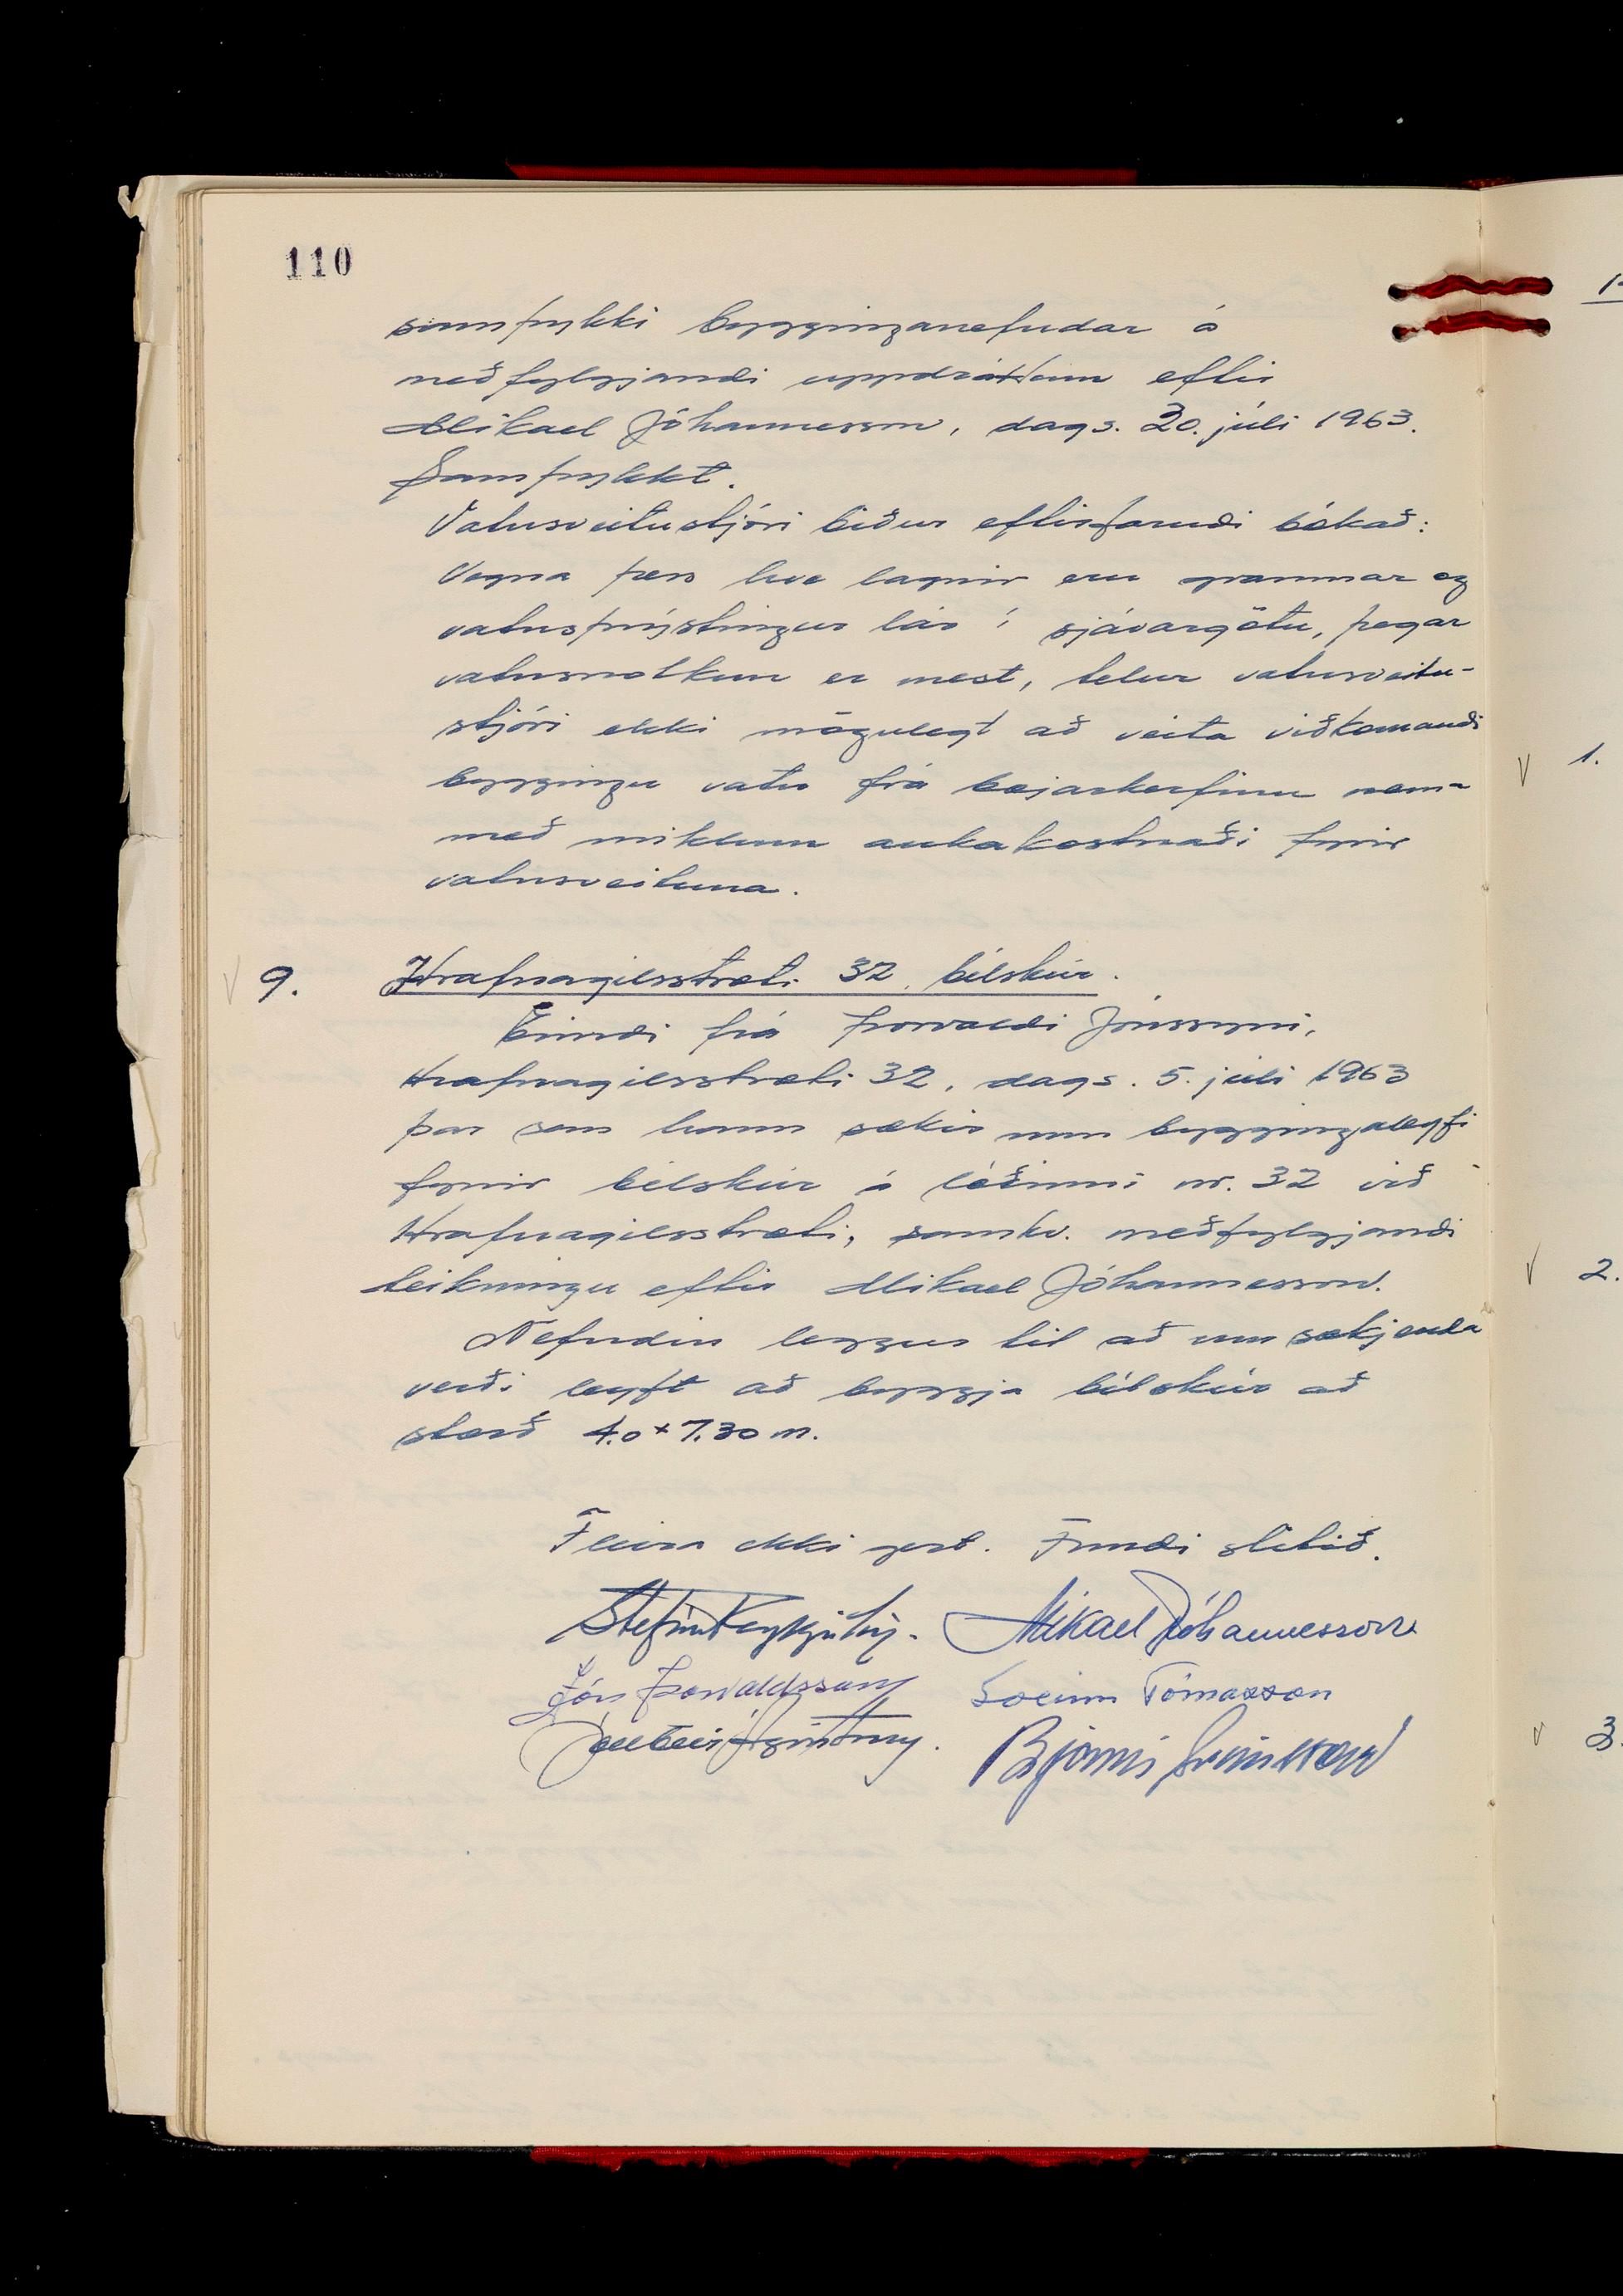 110
samþykki bygginganefndar á
meðfylgjandi uppdráttum eftir
Mikael Jóhannesson, dags. 20. júlí 1963.
Samþykkt.
Vatnsveitustjóri biður eftirfarandi bókað:
Vegna þess hve lagnir eru grannar og
vatnsþrýstingur lár í sjávargötu, þegar
vatnsnotkun er mest, telur vatnsveitu-
stjóri ekki mögulegt að veita viðkomandi
byggingu vatn frá bæjarkerfinu nema
með miklum aukakostnaði fyrir
vatnsveituna.
9. Hrafnagilsstræti 32, bílskúr.
Erindi frá Þorvaldi Jónssyni,
Hrafnagilsstræti 32, dags. 5. júlí 1963
þar sem hann sækir um byggingaleyfi
fyrir bílskúr á lóðinni nr. 32 við
Hrafnagilsstræti, samkv. meðfylgjandi
teikningu eftir Mikael Jóhannesson.
Nefndin leggur til að umsækjenda
verði leyft að byggja bílskúr að
stærð 4.0 x 7.30 m.
Fleira ekki gert. Fundi slitið.
Stefán Reykjalín. Mikael Jóhannesson
Jón Þorvaldsson Sveinn Tómasson
Ágústsson.
1.
2.
3.